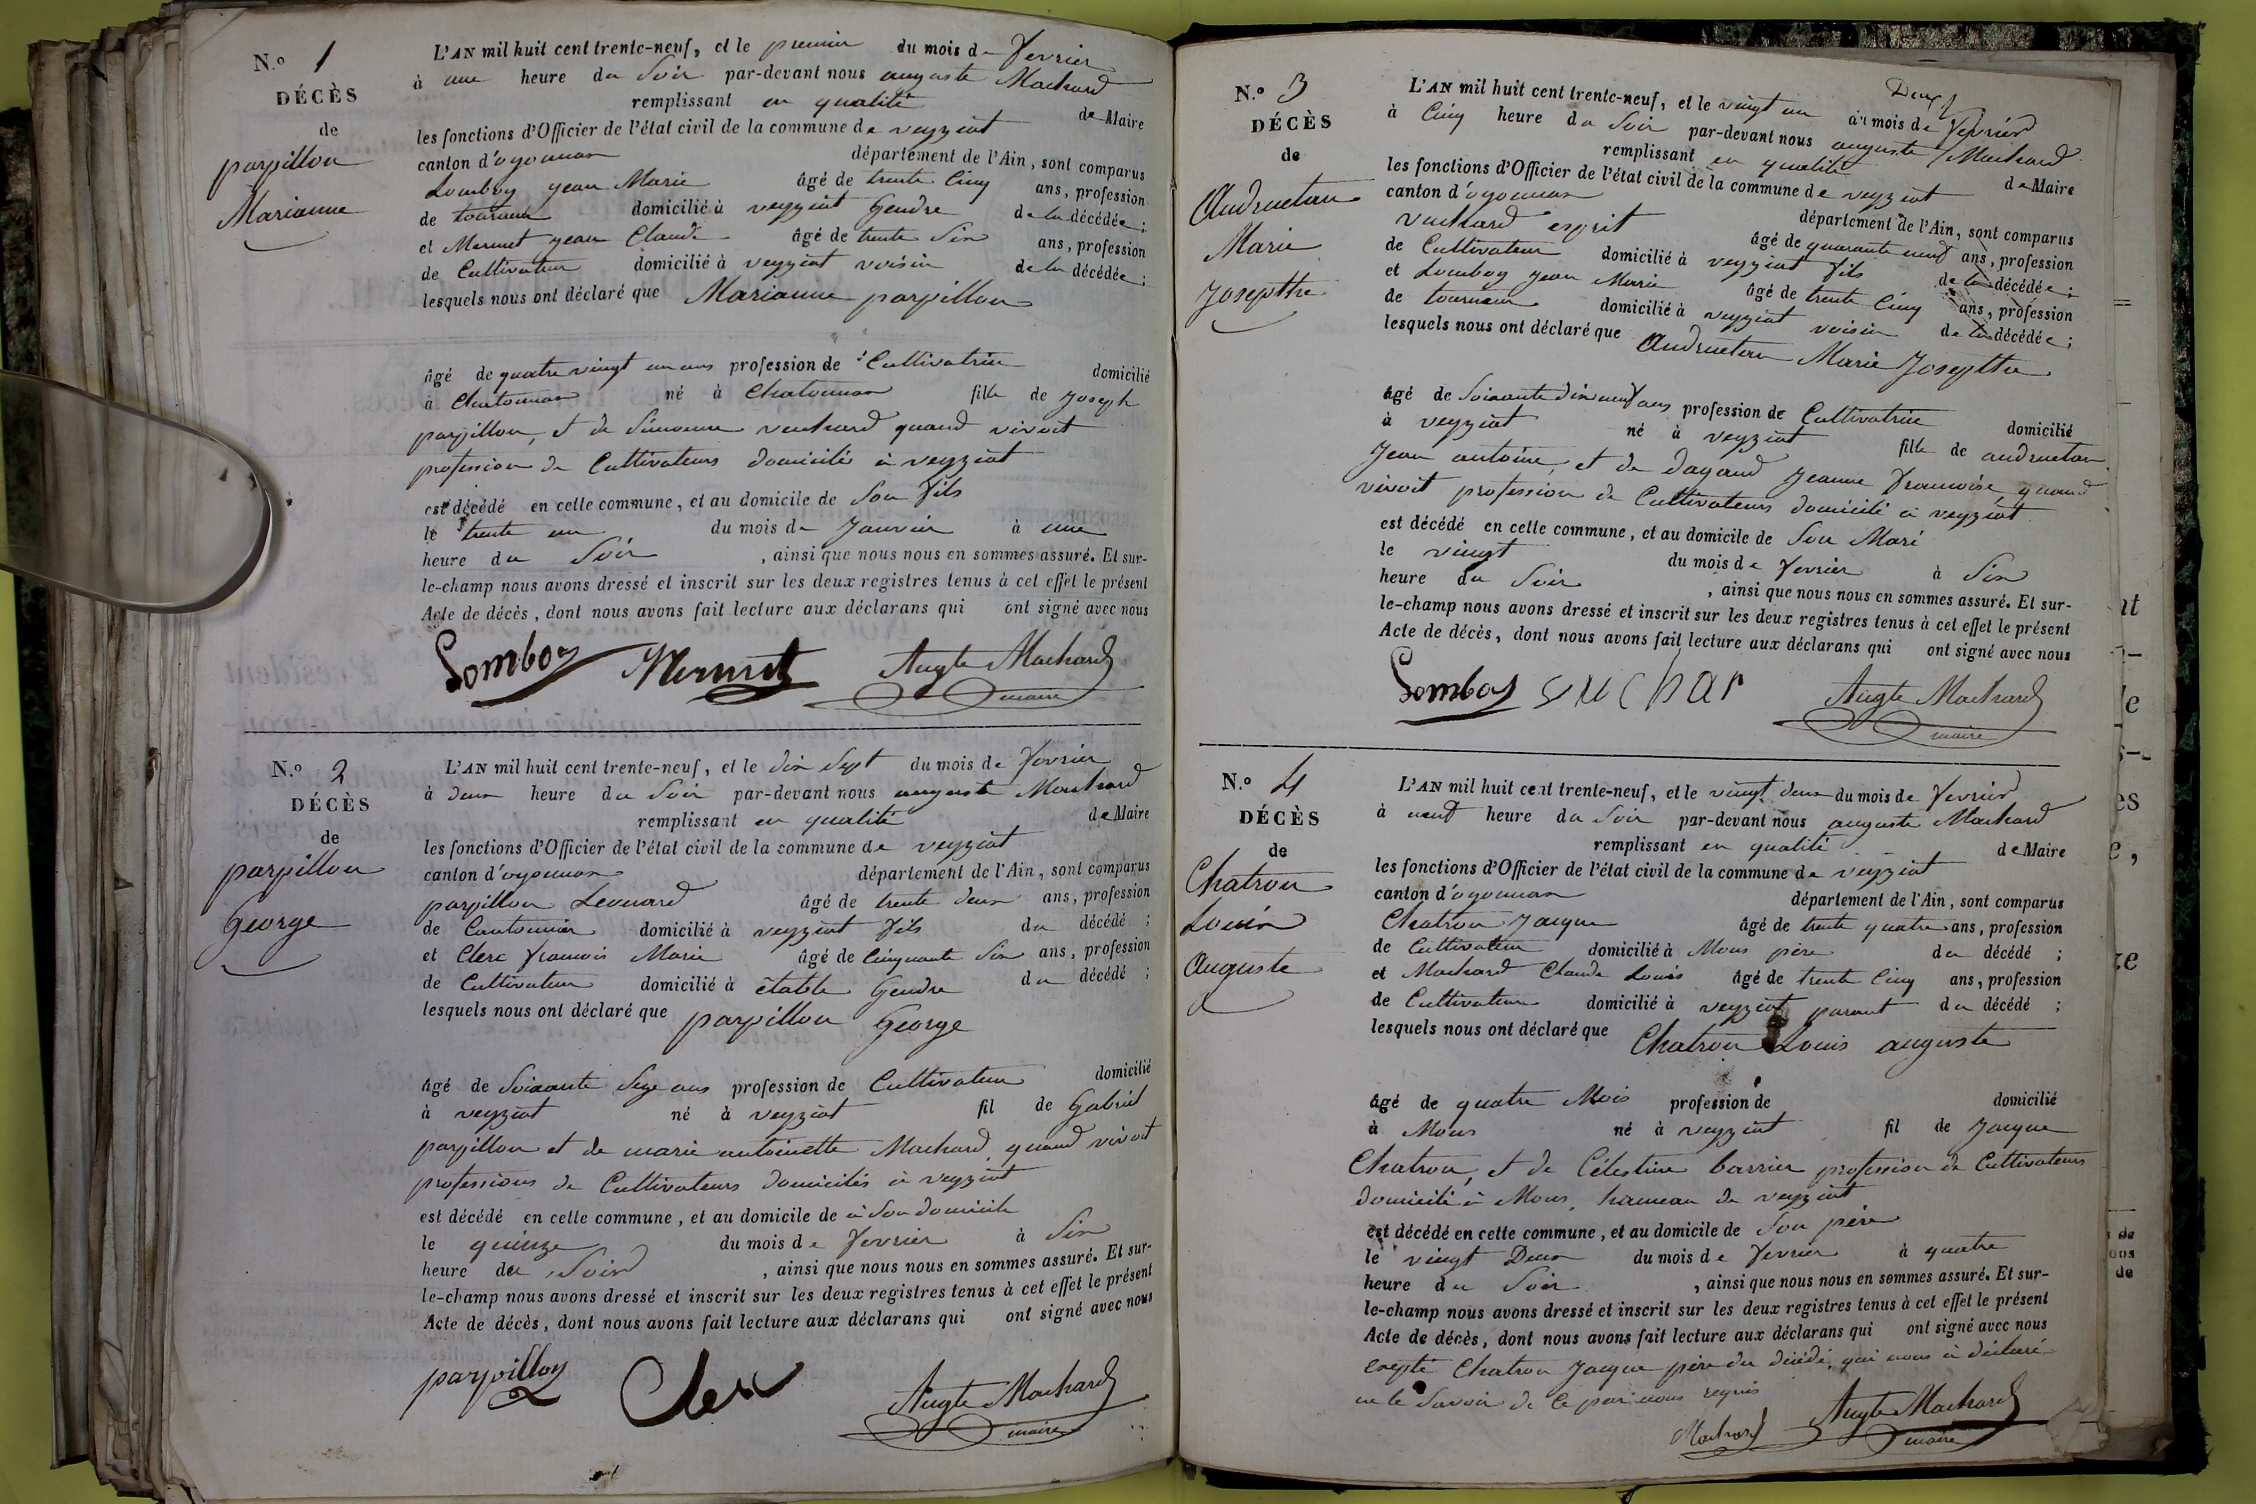 N.º 1
DÉCÈS
de
parpillon
Marianne
L'AN mil huit cent trente-neuf, et le premier du mois de fevrier
à une heure du Soir par-devant nous auguste Machard
remplissant en qualité de Maire
les fonctions d'Officier de l'état civil de la commune de veyziat
canton d'oyonnax département de l'Ain, sont comparus
Lomboy jean Marie âgé de trente Cinq ans, profession
de tourneur domicilié à veyziat Gendre de la décédée;
et Mermet jean Claude âgé de trente Six ans, profession
de Cultivateur domicilié à veyziat voisin de la décédée;
lesquels nous ont déclaré que Marianne parpillon
âgé de quatre vingt un ans profession de Cultivatrice domicilié
à Chatonnax né à Chatonnax fille de joseph
parpillon, et de Simonne vuchard quand vivoit
profession de Cultivateurs domiciliés à veyziat
est décédé en cette commune, et au domicile de Son fils
le trente un du mois de janvier à une
heure du Soir, ainsi que nous nous en sommes assuré. Et sur-
le-champ nous avons dressé et inscrit sur les deux registres tenus à cet effet le présent
Acte de décès, dont nous avons fait lecture aux déclarans qui ont signé avec nous
Lomboy Mermet Augte Machard
maire
N.º 2
DÉCÈS
de
parpillon
George
L'AN mil huit cent trente-neuf, et le dix Sept du mois de fevrier
à deux heure du Soir par-devant nous auguste Machard
remplissant en qualité de Maire
les fonctions d'Officier de l'état civil de la commune de veyziat
canton d'oyonnax département de l'Ain, sont comparus
parpillon Leonard âgé de trente deux ans, profession
de Cantonnier domicilié à veyziat fils du décédé;
et Clerc francois Marie âgé de Cinquante Six ans, profession
de Cultivateur domicilié à étable Gendre du décédé;
lesquels nous ont déclaré que parpillon George
âgé de Soixante Seze ans profession de Cultivateur domicilié
à veyziat né à veyziat fil de Gabriel
parpillon et de marie antoinette Machard, quand vivoit
professions de Cultivateurs domiciliés à veyziat
est décédé en cette commune, et au domicile de à Son domicile
le quinze du mois de fevrier à Six
heure du Soir, ainsi que nous nous en sommes assuré. Et sur-
le-champ nous avons dressé et inscrit sur les deux registres tenus à cet effet le présent
Acte de décès, dont nous avons fait lecture aux déclarans qui ont signé avec nous
parpillon Clerc Augte Machard
maire
N.º 3
DÉCÈS
de
Andruetan
Marie
Josepthe
Deux
L'AN mil huit cent trente-neuf, et le vingt un du mois de fevrier
à Cinq heure du Soir par-devant nous auguste Machard
remplissant en qualité de Maire
les fonctions d'Officier de l'état civil de la commune de veyziat
canton d'oyonnax département de l'Ain, sont comparus
vuchard esprit âgé de quarante neuf ans, profession
de Cultivateur domicilié à veyziat fils de la décédée;
et Lomboy jean Marie âgé de trente Cinq ans, profession
de tourneur domicilié à veyziat voisin de la décédée;
lesquels nous ont déclaré que Andruetan Marie Josepthe
âgé de Soixante dix neuf ans profession de Cultivatrice domicilié
à veyziat né à veyziat fille de andruetan
jean antoine, et de dagand jeanne francoise, quand
vivoit profession de Cultivateurs domicilié à veyziat
est décédé en cette commune, et au domicile de Son Mari
le vingt du mois de fevrier à Six
heure du Soir, ainsi que nous nous en sommes assuré. Et sur-
le-champ nous avons dressé et inscrit sur les deux registres tenus à cet effet le présent
Acte de décès, dont nous avons fait lecture aux déclarans qui ont signé avec nous
Lomboy vuchar Augte Machard
maire
N.º 4
DÉCÈS
de
Chatron
Louis
Auguste
L'AN mil huit cent trente-neuf, et le vingt deux du mois de fevrier
à neuf heure du Soir par-devant nous auguste Machard
remplissant en qualité de Maire
les fonctions d'Officier de l'état civil de la commune de veyziat
canton d'oyonnax département de l'Ain, sont comparus
Chatron Jacque âgé de trente quatre ans, profession
de Cultivateur domicilié à Mons père du décédé;
et Machard Claude Louis âgé de trente Cinq ans, profession
de Cultivateur domicilié à veyziat parant du décédé;
lesquels nous ont déclaré que Chatron Louis auguste
âgé de quatre Mois profession de domicilié
à Mons né à veyziat fil de Jacque
Chatron, et de Célestine barrier profession de Cultivateurs
domicilié à Mons, hameau de veyziat
est décédé en cette commune, et au domicile de Son père
le vingt Deux du mois de fevrier à quatre
heure du Soir, ainsi que nous nous en sommes assuré. Et sur-
le-champ nous avons dressé et inscrit sur les deux registres tenus à cet effet le présent
Acte de décès, dont nous avons fait lecture aux déclarans qui ont signé avec nous
exepté Chatron Jacque père du décédé, qui nous à déclaré
ne le Savoir de Ce par nous requis
Machard Augte Machard
maire